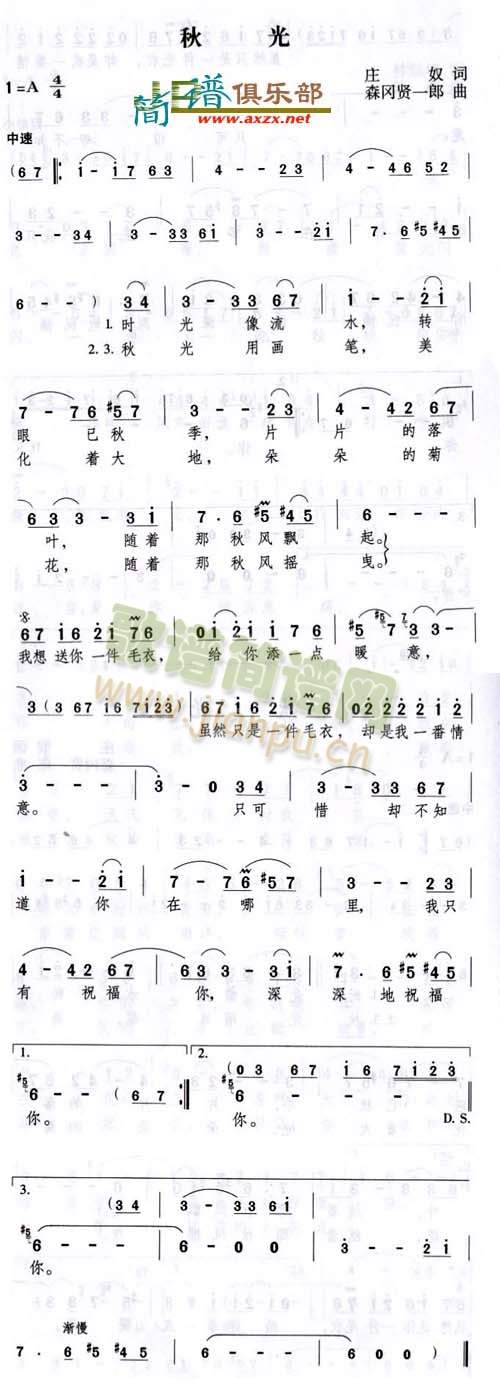 秋 光
1=A 4/4
简谱俱乐部
www.axzx.net
庄 奴 词
森冈贤一郎 曲
中速
(6 7 ‖: i - i 7 6 3 | 4 - - 2 3 | 4 - 4 6 5 2 |
3 - - 3 | 3 - 3 3 6 i | 3 - - 2 i | 7 · 6 #5 #4 5 |
6 - - ) 3 4 | 3 - 3 3 6 7 | i - - 2 i |
1. 时 光 像 流 水, 转
2. 3. 秋 光 用 画 笔, 美
7 - 7 6 #5 7 | 3 - - 2 3 | 4 - 4 2 6 7 |
眼 已 秋 季, 片 片 的 落
化 着 大 地, 朵 朵 的 菊
6 3 3 - 3 i | 7 · 6 #5 #4 5 | 6 - - -
叶, 随 着 那 秋 风 飘 起。
花, 随 着 那 秋 风 摇 曳。
6 7 i 6 2 i 7 6 | 0 i 2 i i 7 6 | #5 #5 7 3 3 - |
我想 送你 一件 毛衣, 给 你 添 一 点 暖 意,
3 (3 6 7 i 6 7 i 2 3) | 6 7 i 6 2 i 7 6 | 0 2 2 2 2 i 2 |
虽然 只是 一件 毛衣, 却 是 我 一 番 情
3 - - - | 3 - 0 3 4 | 3 - 3 3 6 7 |
意。 只可 惜 却 不知
i - - 2 i | 7 - 7 6 #5 7 | 3 - - 2 3 |
道 你 在 哪 里, 我只
4 - 4 2 6 7 | 6 3 3 - 3 i | 7 6 #5 #4 5
有 祝 福 你, 深 深 地 祝 福
1. 2.
(0 3 6 7 i 6 7 i 2 3
#5 6 - - (6 7 :‖ #5 6 - - - ) ‖
你。 你。 D. S.
3.
(3 4 | 3 - 3 3 6 i
#5 6 - - - | 6 - 0 0 | 3 - - 2 i |
你。
渐慢
7 · 6 #5 #4 5 | 6 - - - | 6 0 0 0 ) ‖
歌谱简谱网
www.jianpu.cn